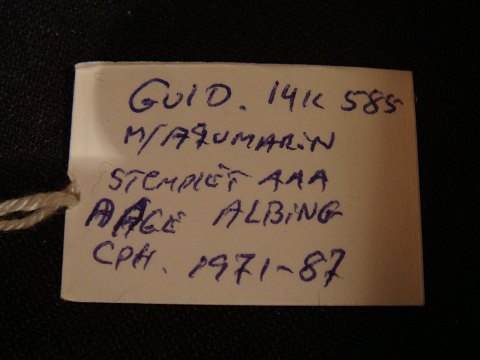 GULD. 14K 585
M/AQUMARIN
STEMPLET AAA
AAGE ALBING
CPH. 1971-87